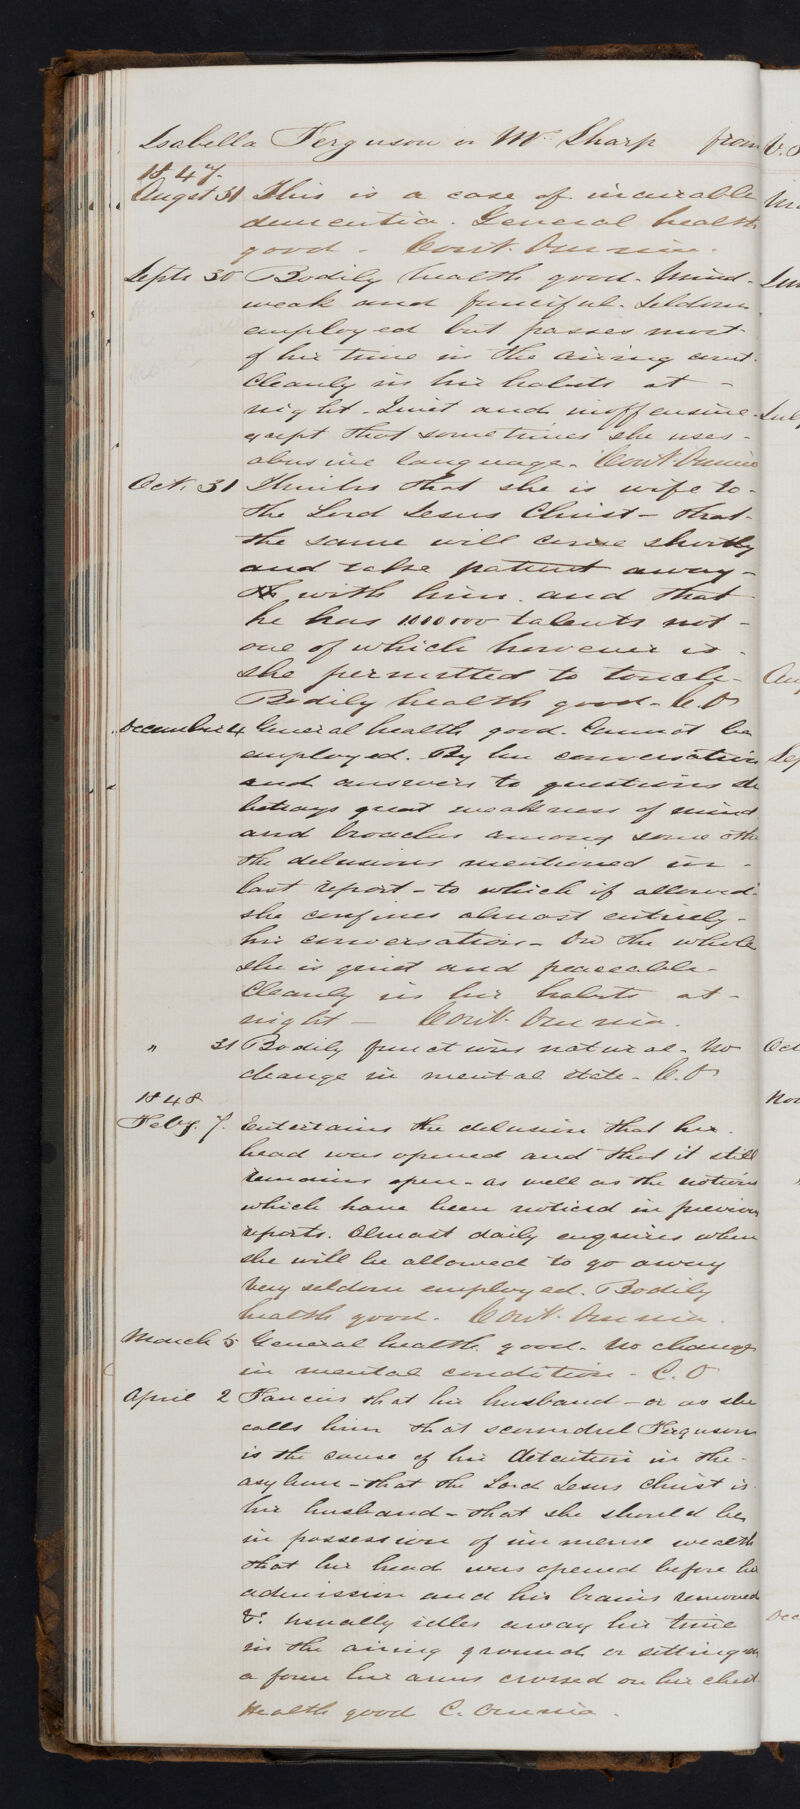 Isabella Ferguson or McSharp from
1847.
Augst 31 This is a case of incurable
dementia. General health
good - Cont. Omnia.
Septr 30 Bodily health good. Mind -
weak and fanciful. Seldom
employed but passes most
of her time in the airing court.
Cleanly in her habits at -
night - Quiet and inoffensive -
except that sometimes she uses -
abusive language. Cont. Omnia
Oct. 31 Thinks that she is wife to -
the Lord Jesus Christ - that
the same will arise shortly
and take patient away -
with him and that
he has 1000000 talents not -
one of which however is -
she permitted to touch -
Bodily health good - C.O
December 4 General health good. Cannot be
employed. By her conversation
and answers to questions she
betrays great weakness of mind
and broaches among some othe
the delusions mentioned in -
last report - to which if allowed
she confines almost entirely -
her conversation - On the whole
she is quiet and peaceable -
Cleanly in her habits at -
night - Cont. Omnia.
" 31 Bodily functions natural - No
change in mental state - C.O
1848
Feby. 7. Entertains the delusion that her
head was opened and that it still
remains open - as well as the notions
which have been noticed in previous
reports. Almost daily enquires when
she will be allowed to go away
Very seldom employed. Bodily
health good. Cont. Omnia.
March 5 General health good. No change
in mental condition - C.O
April 2 Fancies that her husband - or as she
calls him that scoundrel Ferguson
is the cause of her detention in the -
asylum - that the Lord Jesus Christ is
her husband - that she should be
in possession of immense wealth
that her head was opened before her
admission and her brains removed
&c usually idles away her time
in the airing ground or sitting on
a form her arms crossed on her chest
Health good C. Omnia.